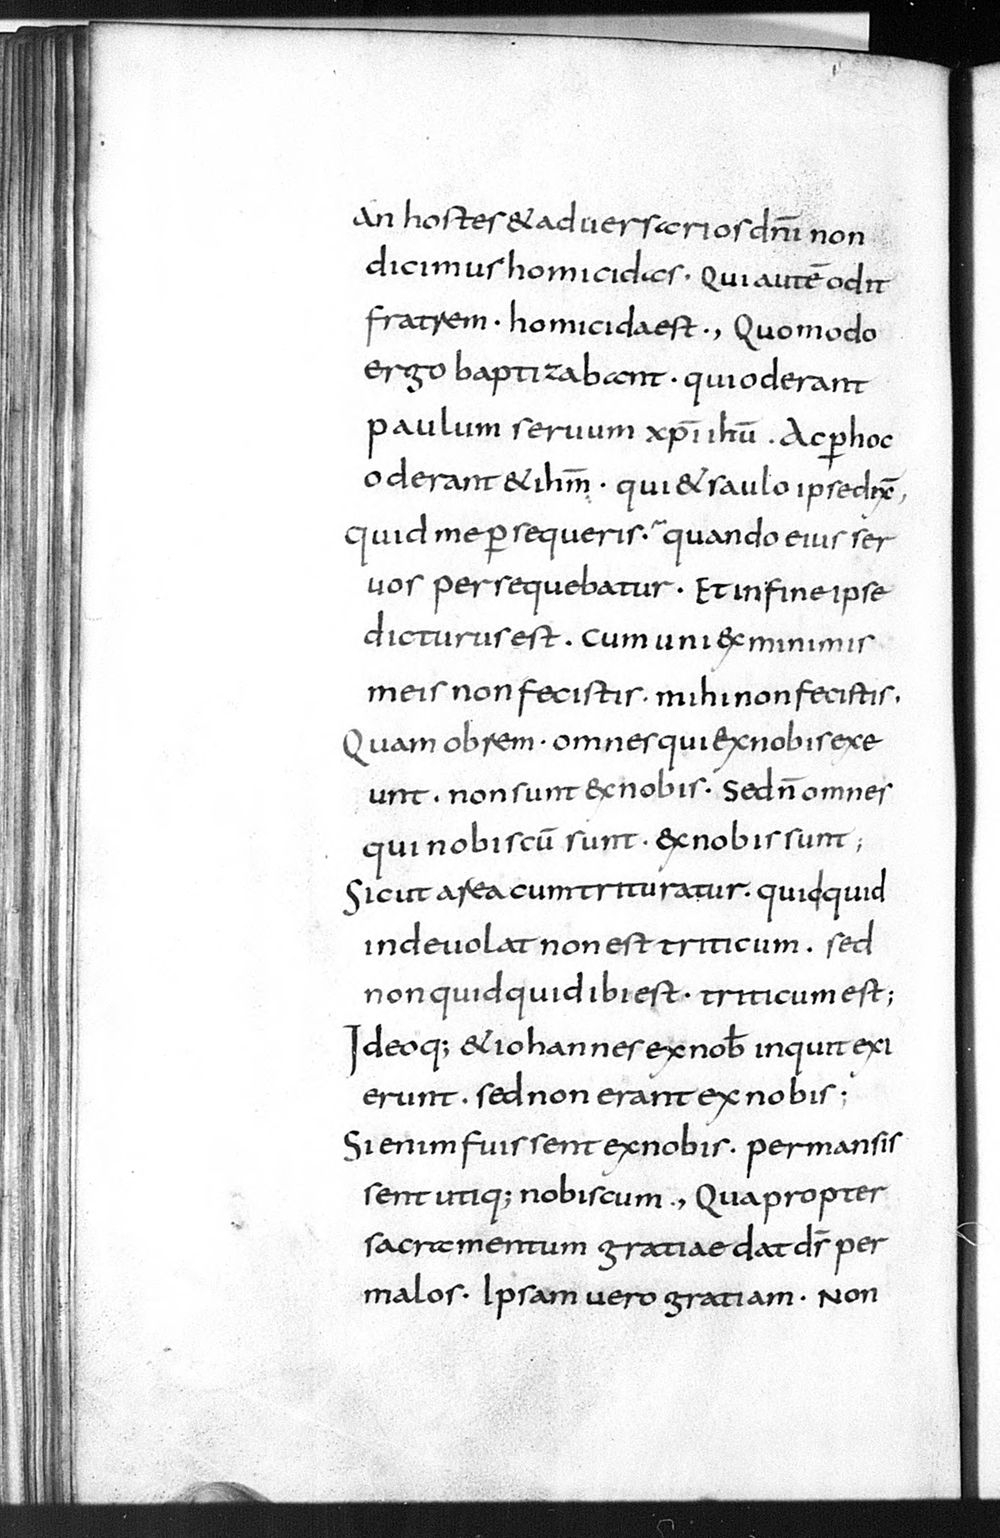 an hostes & aduersarios dn̄i non
dicimus homicidas · Qui autē odit
fratrem · homicida est ·, Quomodo
ergo baptizabant · qui oderant
paulum seruum xp̄i ih̄u · Ac p̲ hoc
oderant & ihm̄ · qui & saulo ipse dix̄,
quid me p̲sequeris · quando eius ser
uos persequebatur · Et in fine ipse
dicturus est · Cum uni ex minimis
meis non fecistis · mihi non fecistis ·
Quam obrem · omnes qui ex nobis exe
unt · non sunt ex nobis · Sed n̄ omnes
qui nobiscū sunt · ex nobis sunt ;
Sicut area cum trituratur · quidquid
inde uolat non est triticum · sed
non quidquid ibi est · triticum est ;
Ideoq; & iohannes ex nob̄ inquit exi
erunt · sed non erant ex nobis ;
Si enim fuissent ex nobis · permansis
sent utiq; nobiscum ·, Quapropter
sacramentum gratiae dat dr̄ per
malos · Ipsam uero gratiam · Non